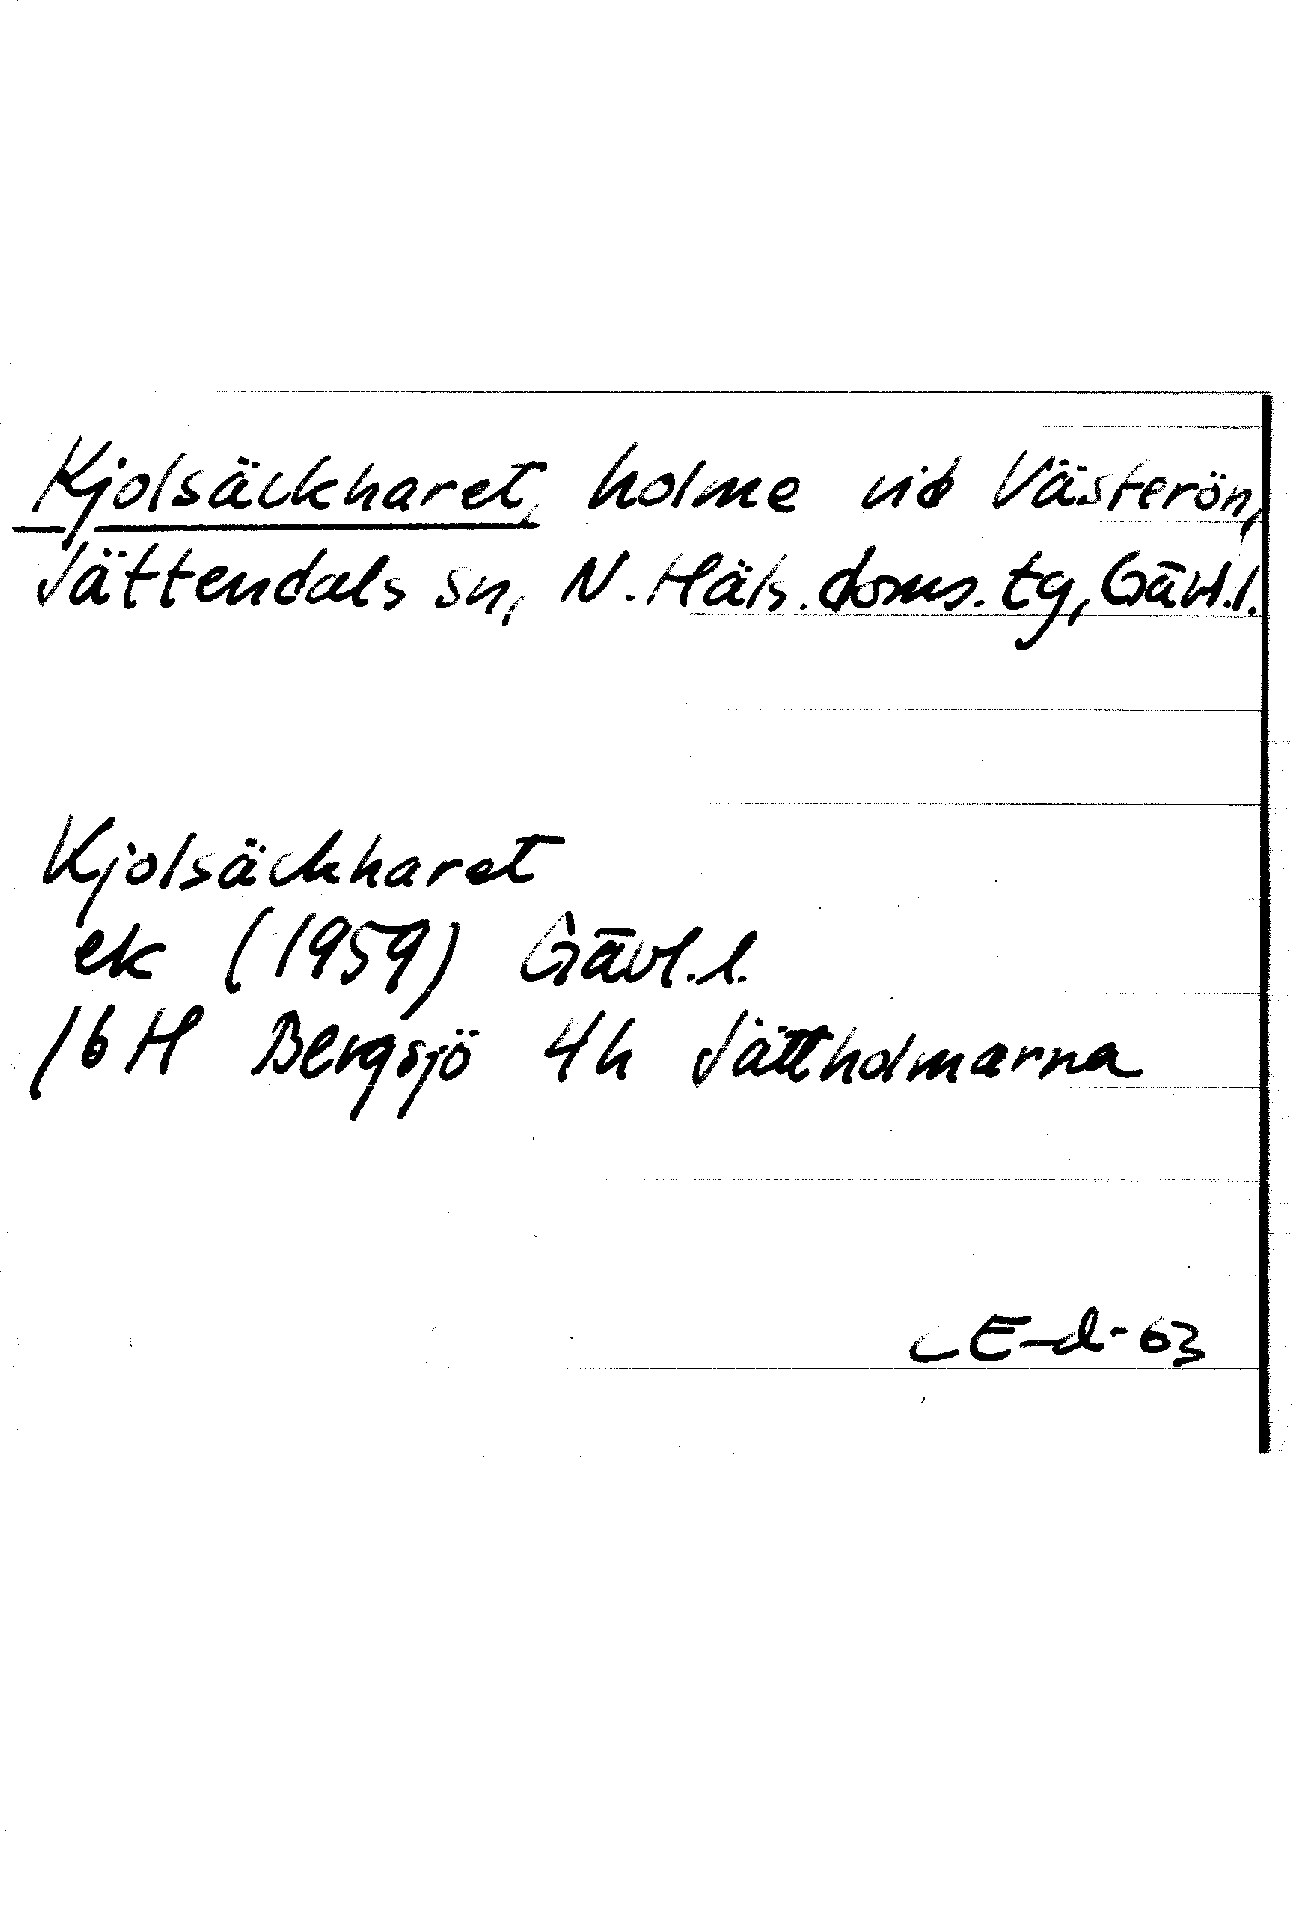 Kjolsäckharet, holme vid Västerön,
Jättendals sn, N. Häls. doms. tg, Gävl.l.
Kjolsäckharet
ek (1959) Gävl.l.
16 H Bergsjö 4h Jättholmarna
E-d-63